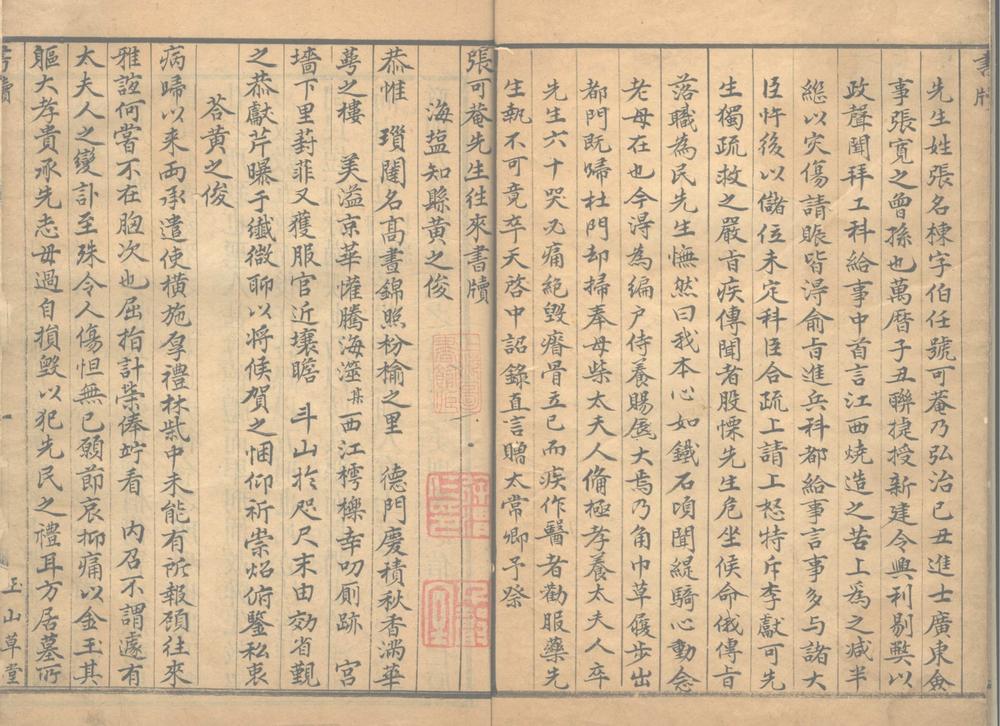 先生姓張名棟字伯任號可菴乃弘治己丑進士廣東僉
事張寛之曾孫也萬曆子丑聯捷授新建令興利剔弊以
政聲聞拜工科給事中首言江西燒造之苦上爲之减半
緫以灾傷請賑皆淂俞㫖進兵科都給事言事多与諸大
臣忤後以儲位未定科臣合疏上請上怒特斥李獻可先
生獨疏救之嚴㫖疾傳聞者股慄先生危坐候命俄傳㫖
落職為民先生憮然曰我本心如鐵石頃聞緹騎心動念
老母在也今淂為編户侍養賜扂大焉乃角巾草履步出
都門既歸杜門却掃奉母柴太夫人俻極孝養太夫人卒
先生六十哭必痛絕毁瘠骨立已而疾作醫者勸服藥先
生執不可竟卒天啓中詔錄直言贈太常卿予祭
張可菴先生往来書牘
海盐知縣黄之俊
恭惟 瑣闥名髙晝錦照枌榆之里 德門慶積秋香滿華
萼之樓 美溢京華懽騰海澨某西江樗櫟幸叨厠跡 宮
墻下里葑菲又獲服官近壤瞻 斗山於咫尺末由効省覲
之恭獻芹曝于纖微聊以将候賀之悃仰祈崇炤俯鑒私衷
荅黄之俊
病歸以来兩承遣使横施厚禮林紫中未能有所報顧往來
雅誼何嘗不在胸次也屈指計榮俸竚看 内召不謂遽有
太夫人之變訃至殊令人傷怛無已願節哀抑痛以金玉其
軀大孝貴承先志毋過自損毁以犯先民之禮耳方居墓所
書牘
一
玉山草堂